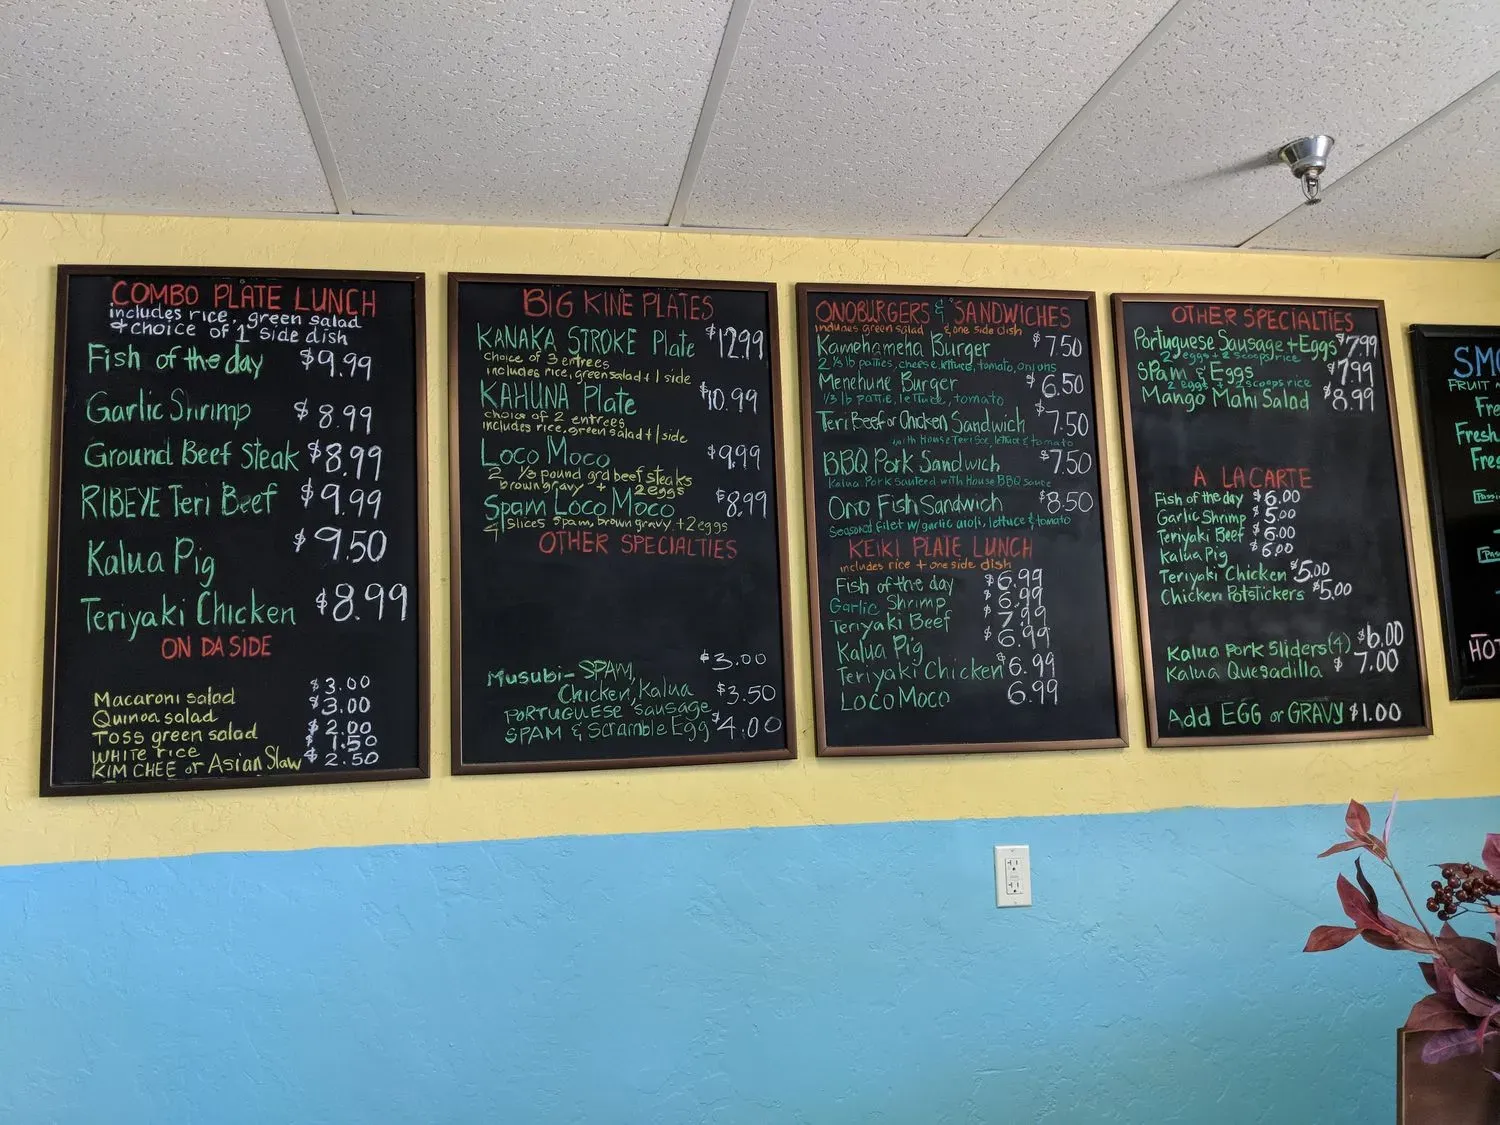 COMBO PLATE LUNCH
includes rice, green salad
& choice of 1 side dish
Fish of the day $9.99
Garlic Shrimp $8.99
Ground Beef Steak $8.99
RIBEYE Teri Beef $9.99
Kalua Pig $9.50
Teriyaki Chicken $8.99
ON DA SIDE
Macaroni salad $3.00
Quinoa salad $3.00
Toss green salad $2.00
WHITE rice $1.50
KIM CHEE or Asian Slaw $2.50
BIG KINE PLATES
KANAKA STROKE Plate $12.99
choice of 3 entrees
includes rice, green salad + 1 side
KAHUNA Plate $10.99
choice of 2 entrees
includes rice, green salad + 1 side
Loco Moco $9.99
2 1/3 pound grd beef steaks
brown gravy + 2 eggs
Spam Loco Moco $8.99
4 slices spam, brown gravy, + 2 eggs
OTHER SPECIALTIES
Musubi - SPAM, $3.00
Chicken, Kalua $3.50
PORTUGUESE sausage,
SPAM & Scramble Egg $4.00
ONOBURGERS & SANDWICHES
includes green salad & one side dish
Kamehameha Burger $7.50
2 1/3 lb patties, cheese, lettuce, tomato, onions
Menehune Burger $6.50
1/3 lb pattie, lettuce, tomato
Teri Beef or Chicken Sandwich $7.50
with House Teri Sce, lettuce & tomato
BBQ Pork Sandwich $7.50
Kalua Pork sauteed with House BBQ sauce
Ono Fish Sandwich $8.50
Seasoned filet w/garlic aioli, lettuce & tomato
KEIKI PLATE LUNCH
includes rice + one side dish
Fish of the day $6.99
Garlic Shrimp $6.99
Teriyaki Beef 7.99
Kalua Pig $6.99
Teriyaki Chicken $6.99
Loco Moco 6.99
OTHER SPECIALTIES
Portuguese Sausage + Eggs $7.99
2 eggs + 2 scoops rice
SPam & Eggs $7.99
2 eggs + 2 scoops rice
Mango Mahi Salad $8.99
A LA CARTE
Fish of the day $6.00
Garlic Shrimp $5.00
Teriyaki Beef $6.00
Kalua Pig $6.00
Teriyaki Chicken $5.00
Chicken Potstickers $5.00
Kalua Pork Sliders (4) $6.00
Kalua Quesadilla $7.00
Add EGG or GRAVY $1.00
SMO
FRUIT
Fre
Fresh
Fres
HOT